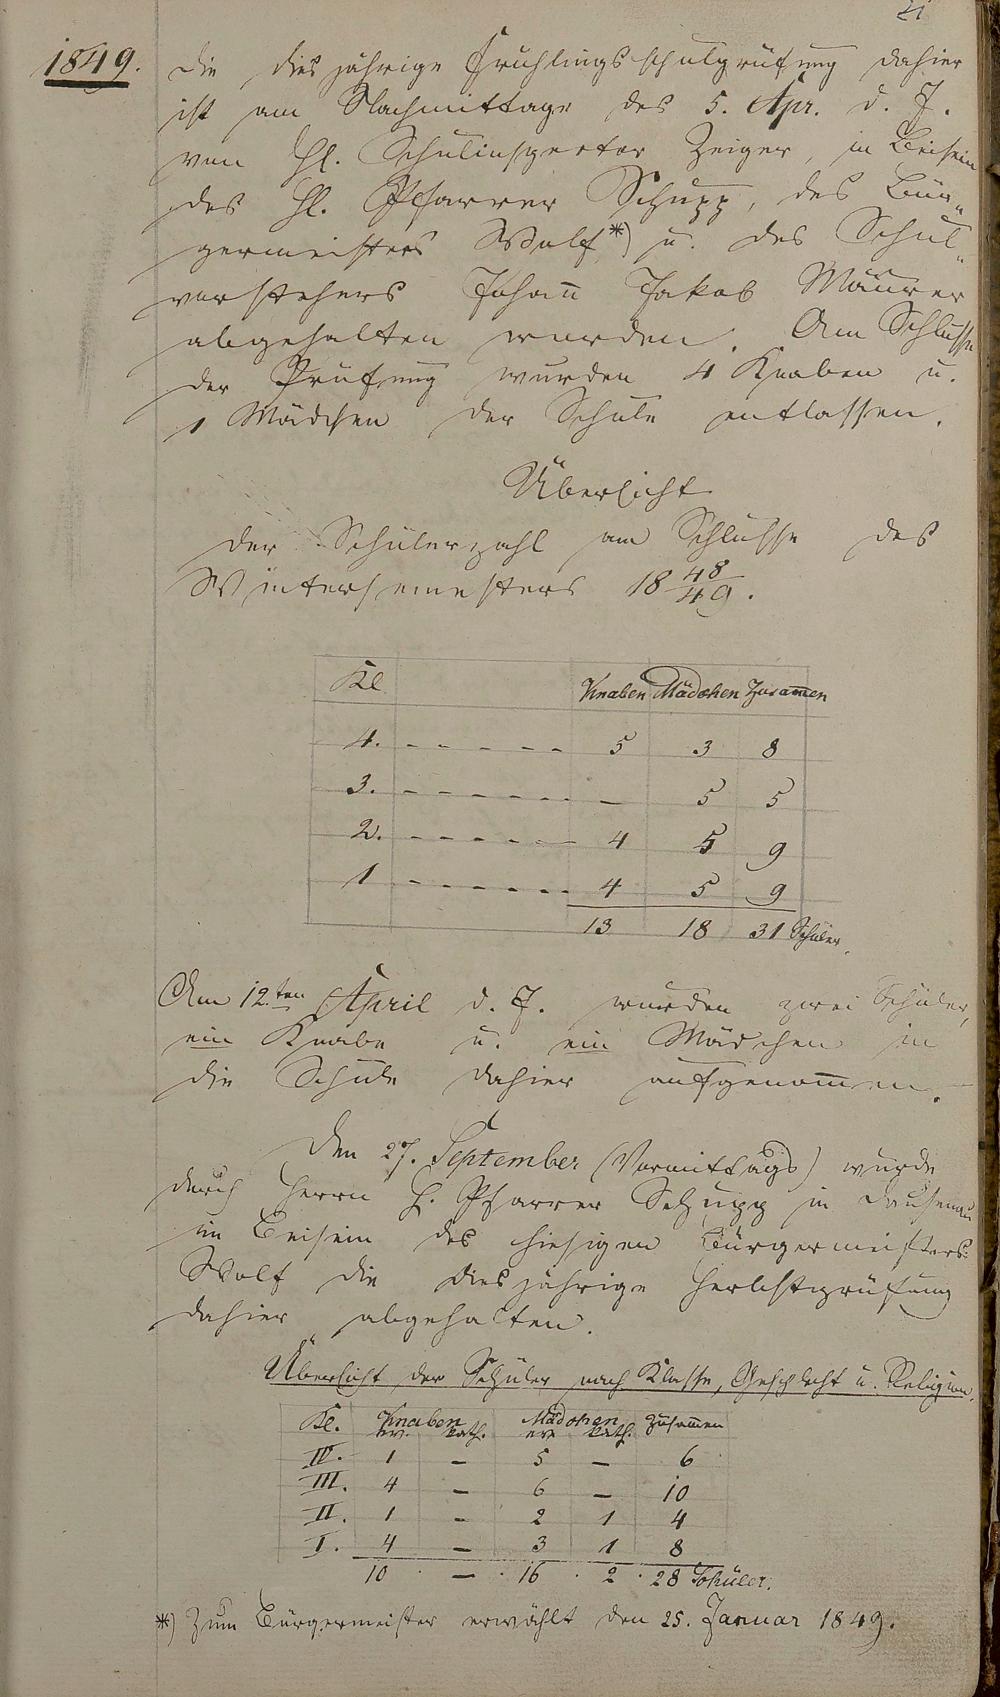 21
1849.
Die dies jährige Fruhlingsschulprüfung dahier
ist am Nachmittage des 5. Apr. d. J.
von Hl. Schulinspector Zeiger, in Beisein
des Hl. Pfarrer Schupp, des Bür„
germeisters Wolf *) u. des Schul„
vorstehers Johan̄ Jakob Mäurer
abgehalten worden. Am Schlusse
der Prüfung wurden 4 Knaben u.
1 Mädchen der Schule entlassen.
Übersicht
der Schülerzahl am Schlusse des
Wintersemesters 18 48/49.
Kl. Knaben Mädchen Zusam̄en
4. - - - - - - 5 3 8
3. - - - - - - - – 5 5
2. - - - - - - 4 5 9
1 - - - - - - - 4 5 9
13 18 31 Schüler.
Am 12.ten April d. J. wurden zwei Schüler,
ein Knabe u. ein Mädchen in
die Schule dahier aufgenom̄en.
Den 27. September (Vormittags) wurde
durch Herrn H. Pfarrer Schupp in Dausenau
im Beisein des hiesigen Bürgermeisters
Wolf die diesjährige Herbstprüfung
dahier abgehalten.
Übersicht der Schüler nach Klasse, Geschlecht u. Religion.
Kl. Knaben Mädchen Zusam̄en
ev. kath. ev. kath.
IV. 1 – 5 – 6
III. 4 – 6 – 10
II. 1 – 2 1 4
I. 4 – 3 1 8
10 – 16 2 28 Schüler.
*) Zum Bürgermeister erwählt den 25. Januar 1849.